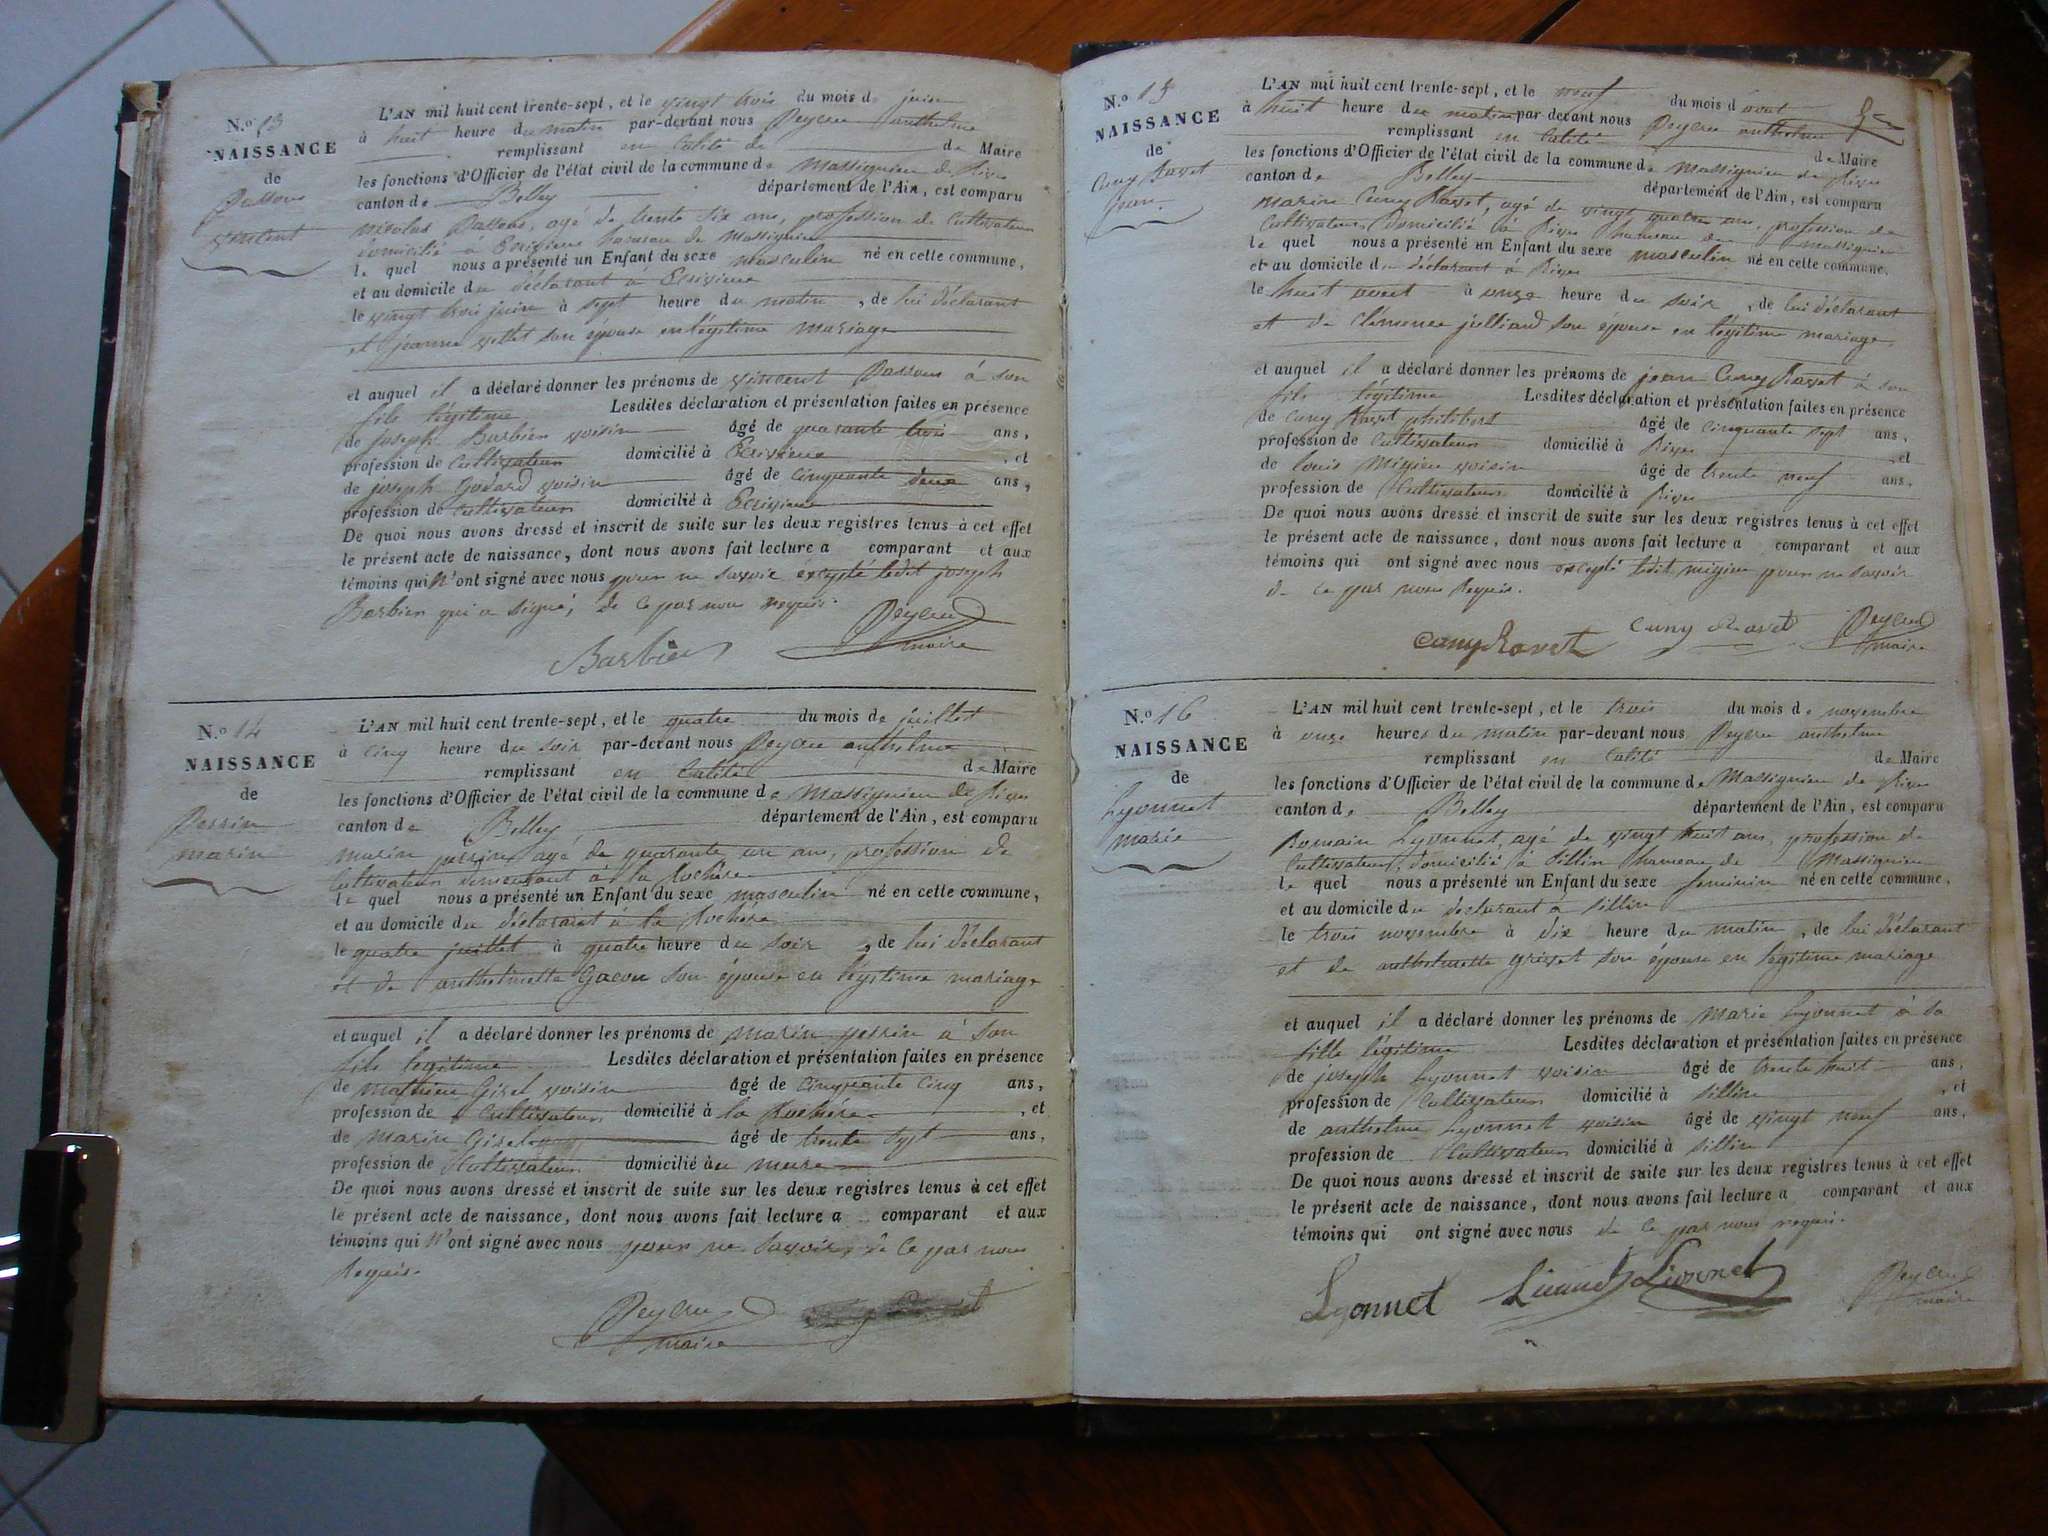 N.o 13
NAISSANCE
de
Passons
vincent
L'AN mil huit cent trente-sept, et le vingt trois du mois de juin
à huit heure du matin par-devant nous Peycru anthelme
remplissant en calité de de Maire
les fonctions d'Officier de l'état civil de la commune de Massignieu de Rives
canton de Belley département de l'Ain, est comparu
nicolas Passons, agé de trente six ans, profession de Cultivateur
domicilié à Ecrivieux hameau de Massignieu
le quel nous a présenté un Enfant du sexe masculin né en cette commune,
et au domicile du déclarant à Ecrivieux
le vingt trois juin à sept heure du matin, de lui déclarant
et jeanne son épouse en légitime mariage
et auquel il a déclaré donner les prénoms de vincent Passons à son
fils légitime Lesdites déclaration et présentation faites en présence
de joseph Barbier voisin âgé de quarante trois ans,
profession de Cultivateur domicilié à Ecrivieux, et
de joseph Godard voisin âgé de cinquante deux ans,
profession de Cultivateur domicilié à Ecrivieux
De quoi nous avons dressé et inscrit de suite sur les deux registres tenus à cet effet
le présent acte de naissance, dont nous avons fait lecture a comparant et aux
témoins qui n'ont signé avec nous pour ne savoir excepté ledit joseph
Barbier qui a signé, de ce par nous requis.
Barbier Peycru
maire
N.o 14
NAISSANCE
de
Perrin
marin
L'AN mil huit cent trente-sept, et le quatre du mois de juillet
à cinq heure du soir par-devant nous Peycru anthelme
remplissant en calité de Maire
les fonctions d'Officier de l'état civil de la commune de Massignieu de Rives
canton de Belley département de l'Ain, est comparu
marin perrin, agé de quarante un ans, profession de
Cultivateur demeurant à la Rochère
le quel nous a présenté un Enfant du sexe masculin né en cette commune,
et au domicile du déclarant à la Rochère
le quatre juillet à quatre heure du soir, de lui déclarant
et de anthelmette Gacon son épouse en légitime mariage
et auquel il a déclaré donner les prénoms de marin perrin à son
fils legitime Lesdites déclaration et présentation faites en présence
de mathieu Girel voisin âgé de cinquante cinq ans,
profession de Cultivateur domicilié à la Rochère, et
de marin âgé de trente sept ans,
profession de Cultivateur domicilié au
De quoi nous avons dressé et inscrit de suite sur les deux registres tenus à cet effet
le présent acte de naissance, dont nous avons fait lecture a comparant et aux
témoins qui n'ont signé avec nous pour ne savoir, de ce par nous
Requis.
Peycru
maire
N.o 15
NAISSANCE
de
Cuny Ravet
jean
L'AN mil huit cent trente-sept, et le neuf du mois d'aout
à huit heure du matin par-devant nous Peycru anthelme
remplissant en calité de Maire
les fonctions d'Officier de l'état civil de la commune de Massignieu de Rives
canton de Belley département de l'Ain, est comparu
marin Cuny Ravet, agé de vingt quatre ans, profession de
Cultivateur, Domicilié à Rives hameau de massignieu
le quel nous a présenté un Enfant du sexe masculin né en cette commune,
et au domicile du déclarant à Rives
le huit aout à onze heure du soir, de lui déclarant
et de clémence julliand son épouse en légitime mariage
et auquel il a déclaré donner les prénoms de jean Cuny Ravet à son
fils légitime Lesdites déclaration et présentation faites en présence
de Cuny Ravet philibert âgé de cinquante sept ans,
profession de Cultivateur domicilié à Rives, et
de louis Migieu voisin âgé de trente neuf ans,
profession de Cultivateur domicilié à Rives
De quoi nous avons dressé et inscrit de suite sur les deux registres tenus à cet effet
le présent acte de naissance, dont nous avons fait lecture a comparant et aux
témoins qui ont signé avec nous excepté ledit migieu pour ne savoir
de ce par nous Requis.
Cuny Ravet Cuny Ravet Peycru
maire
N.o 16
NAISSANCE
de
Lyonnet
marie
L'AN mil huit cent trente-sept, et le trois du mois de novembre
à onze heures du matin par-devant nous Peycru anthelme
remplissant en calité de Maire
les fonctions d'Officier de l'état civil de la commune de Massignieu de Rives
canton de Belley département de l'Ain, est comparu
Romain Lyonnet, agé de vingt huit ans, profession de
Cultivateur, domicilié à Sillin hameau de Massignieu
le quel nous a présenté un Enfant du sexe feminin né en cette commune,
et au domicile du declarant à Sillin
le trois novembre à dix heure du matin, de lui déclarant
et de anthelmette son épouse en legitime mariage
et auquel il a déclaré donner les prénoms de Marie Lyonnet à sa
fille légitime Lesdites déclaration et présentation faites en présence
de joseph Lyonnet voisin âgé de trente huit ans,
profession de Cultivateur domicilié à Sillin, et
de anthelme Lyonnet voisin âgé de vingt neuf ans,
profession de Cultivateur domicilié à Sillin
De quoi nous avons dressé et inscrit de suite sur les deux registres tenus à cet effet
le présent acte de naissance, dont nous avons fait lecture a comparant et aux
témoins qui ont signé avec nous de ce par nous requis.
Lyonnet Lionnet Peycru
maire